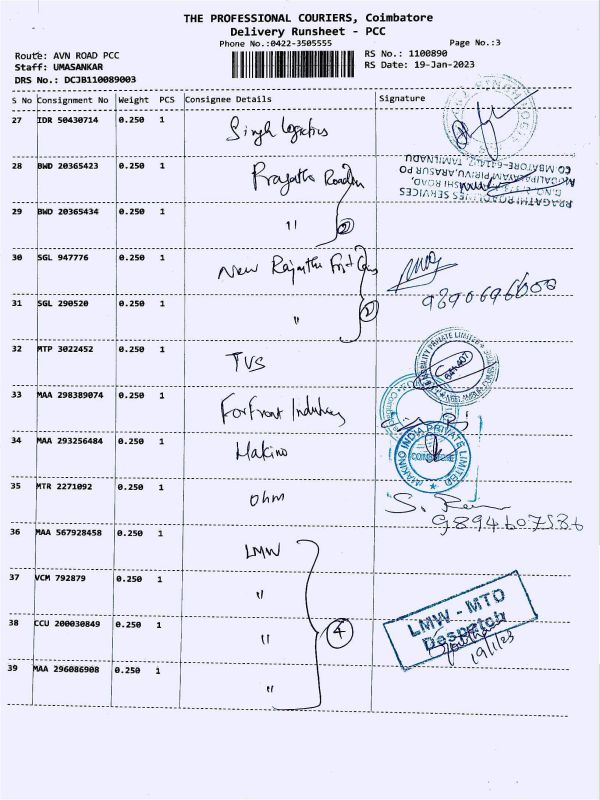 THE PROFESSIONAL COURIERS, Coimbatore
Delivery Runsheet - PCC
Phone No.:0422-3505555
Page No.:3
Route: AVN ROAD PCC
RS No.: 1100890
Staff: UMASANKAR
RS Date: 19-Jan-2023
DRS No.: DCJB110089003
S No Consignment No Weight PCS Consignee Details Signature
27 IDR 50430714 0.250 1 Singh logistics
28 BWD 20365423 0.250 1 Pragathi
PRAGATHI ROADLINES SERVICES
29 BWD 20365434 0.250 1 "
2
30 SGL 947776 0.250 1 New Rajasthan
31 SGL 290520 0.250 1 "
2
32 MTP 3022452 0.250 1 TVS
33 MAA 298389074 0.250 1 Forfront
34 MAA 293256484 0.250 1 Makino
MAKINO INDIA PRIVATE LIMITED
35 MTR 2271092 0.250 1 Ohm
36 MAA 567928458 0.250 1 LMW
37 VCM 792879 0.250 1 "
38 CCU 200030849 0.250 1 "
4
LMW - MTD
Despatch
19/1/23
39 MAA 296086908 0.250 1 "